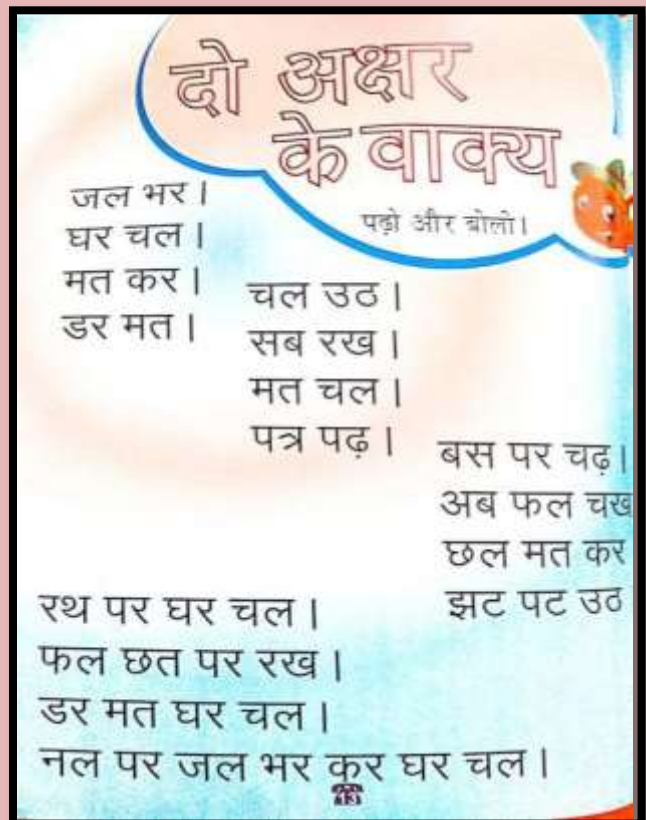 दो अक्षर
के वाक्य
पढ़ो और बोलो।
जल भर।
घर चल।
मत कर।
डर मत।
चल उठ।
सब रख।
मत चल।
पत्र पढ़।
बस पर चढ़।
अब फल चख
छल मत कर
झट पट उठ
रथ पर घर चल।
फल छत पर रख।
डर मत घर चल।
नल पर जल भर कर घर चल।